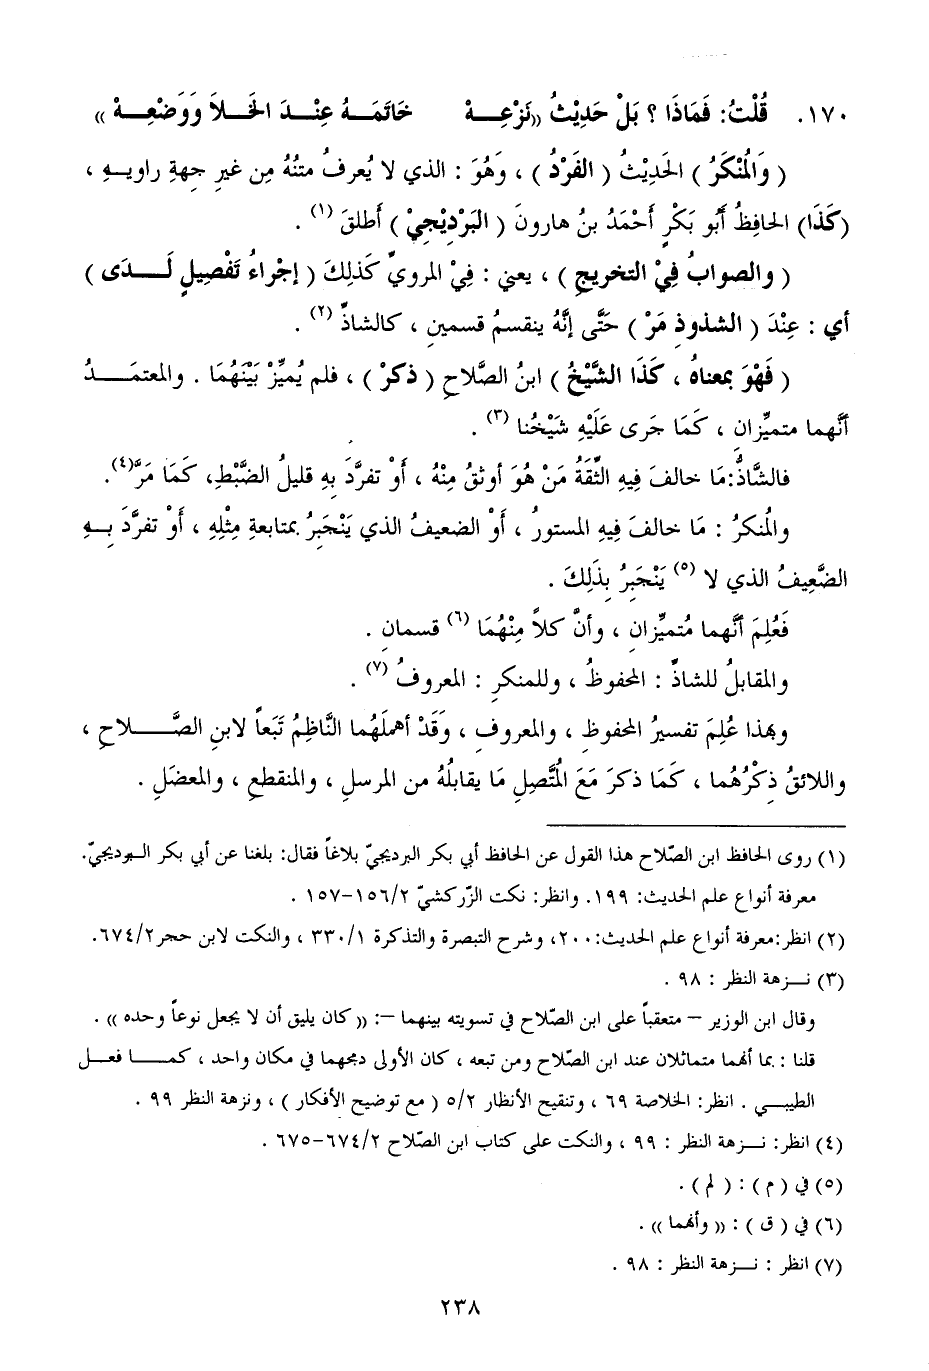 ١٧٠. قُلْتُ: فَمَاذَا ؟ بَلْ حَدِيْثُ «نَزْعِهْ خَاتَمَهُ عِنْدَ الخَلاَ وَوَضْعِهْ»
( وَالمُنْكَرُ ) الحَدِيْثُ ( الفَرْدُ ) ، وَهُوَ : الذي لا يُعرفُ متنُهُ مِن غيرِ جهةِ راويهِ ،
(كَذَا) الحافِظُ أَبُو بَكْرٍ أَحْمَدُ بنُ هارونَ ( البَرْدِيْجِيْ ) أَطلقَ (١) .
( والصوابُ فِيْ التخريجِ ) ، يعني : فِيْ المرويِّ كَذلِكَ ( إجْراءُ تَفْصِيلٍ لَدَى )
أي : عِنْدَ ( الشذوذِ مَرْ ) حَتَّى إنَّهُ ينقسمُ قسمينِ ، كالشاذِّ (٢) .
( فَهْوَ بمعناهُ ، كَذَا الشَّيْخُ ) ابنُ الصَّلاحِ ( ذكرْ ) ، فلم يُميِّزْ بَيْنَهُمَا . والمعتمَدُ
أنَّهما متميِّزانِ ، كَمَا جَرى عَلَيْهِ شَيْخُنا (٣) .
فالشَّاذُّ:مَا خالفَ فِيهِ الثِّقَةُ مَنْ هُوَ أوثقُ مِنْهُ ، أَوْ تفرَّدَ بِهِ قليلُ الضَّبْطِ، كَمَا مَرَّ(٤).
والمُنكرُ : مَا خالفَ فِيهِ المستورُ ، أَوْ الضعيفُ الذي يَنْجَبِرُ بمتابعةِ مِثْلِهِ ، أَوْ تفرَّدَ بِهِ
الضَّعِيفُ الذي لا (٥) يَنْجَبِرُ بِذَلِكَ .
فَعُلِمَ أنَّهما مُتميِّزانِ ، وأنَّ كلاً مِنْهُمَا (٦) قسمانِ .
والمقابلُ للشاذِّ : المحفوظُ ، وللمنكرِ : المعروفُ (٧) .
وبهذا عُلِمَ تفسيرُ المحفوظِ ، والمعروفِ ، وَقَدْ أهملَهُما النَّاظِمُ تَبَعاً لابنِ الصَّلاحِ ،
واللائقُ ذِكْرُهُما ، كَمَا ذكرَ مَعَ المُتَّصِلِ مَا يقابلُهُ من المرسلِ ، والمنقطعِ ، والمعضَلِ .
(١) روى الحافظ ابن الصّلاح هذا القول عن الحافظ أبي بكر البرديجيّ بلاغاً فقال: بلغنا عن أبي بكر البرديجيّ.
معرفة أنواع علم الحديث: ١٩٩. وانظر: نكت الزّركشيّ ٢/١٥٦-١٥٧ .
(٢) انظر:معرفة أنواع علم الحديث:٢٠٠، وشرح التبصرة والتذكرة ١/٣٣٠ ، والنكت لابن حجر٢/٦٧٤.
(٣) نزهة النظر : ٩٨ .
وقال ابن الوزير – متعقباً على ابن الصّلاح في تسويته بينهما –: « كان يليق أن لا يجعل نوعاً وحده » .
قلنا : بما أنهما متماثلان عند ابن الصّلاح ومن تبعه ، كان الأولى دمجهما في مكان واحد ، كما فعل
الطيبي . انظر: الخلاصة ٦٩ ، وتنقيح الأنظار ٢/٥ ( مع توضيح الأفكار ) ، ونزهة النظر ٩٩ .
(٤) انظر: نزهة النظر : ٩٩ ، والنكت على كتاب ابن الصّلاح ٢/٦٧٤-٦٧٥ .
(٥) في ( م ) : ( لم ) .
(٦) في ( ق ) : « وأنهما » .
(٧) انظر : نزهة النظر : ٩٨ .
٢٣٨